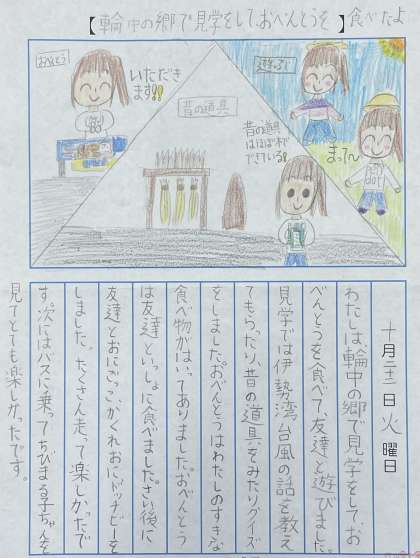 【輪中の郷で見学をして、おべんとうを】食べたよ
おべんとう
いただき
ます!!
昔の道具
遊び
昔の道具
はほぼ木で
できている!
まってー
十月二十二日火曜日
わたしは、輪中の郷で見学をして、お
べんとうを食べて、友達と遊びました。
見学では伊勢湾台風の話を教え
てもらったり、昔の道具をみたりクイズ
をしました。おべんとうはわたしのすきな
食べ物がはいってありました。おべんとう
は友達といっしょに食べました。さい後に
友達とおにごっこ、かくれおにドッチビーを
しました。たくさん走って楽しかったで
す。次にはバスに乗ってちびまる子ちゃんを
見てとても楽しかったです。